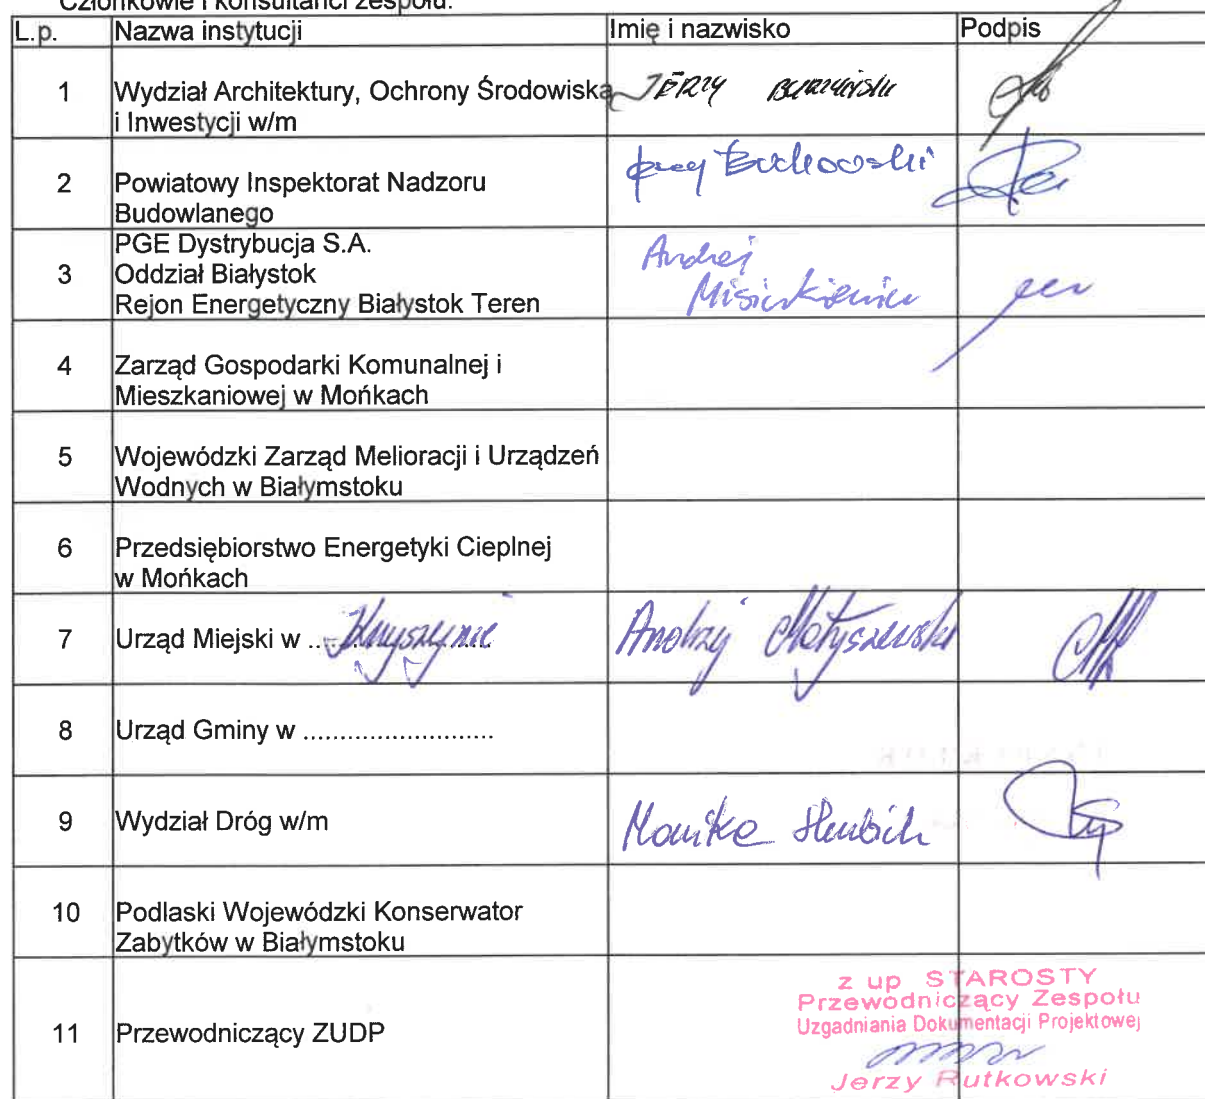 Członkowie i konsultanci zespołu:
L.p. Nazwa instytucji Imię i nazwisko Podpis
1 Wydział Architektury, Ochrony Środowiska JERZY
i Inwestycji w/m
2 Powiatowy Inspektorat Nadzoru
Budowlanego
PGE Dystrybucja S.A.
3 Oddział Białystok Andrzej
Rejon Energetyczny Białystok Teren
4 Zarząd Gospodarki Komunalnej i
Mieszkaniowej w Mońkach
5 Wojewódzki Zarząd Melioracji i Urządzeń
Wodnych w Białymstoku
6 Przedsiębiorstwo Energetyki Cieplnej
w Mońkach
7 Urząd Miejski w ... Knyszynie Andrzej Matyszewski
8 Urząd Gminy w ..........................
9 Wydział Dróg w/m Monika
10 Podlaski Wojewódzki Konserwator
Zabytków w Białymstoku
11 Przewodniczący ZUDP
z up STAROSTY
Przewodniczący Zespołu
Uzgadniania Dokumentacji Projektowej
Jerzy Rutkowski